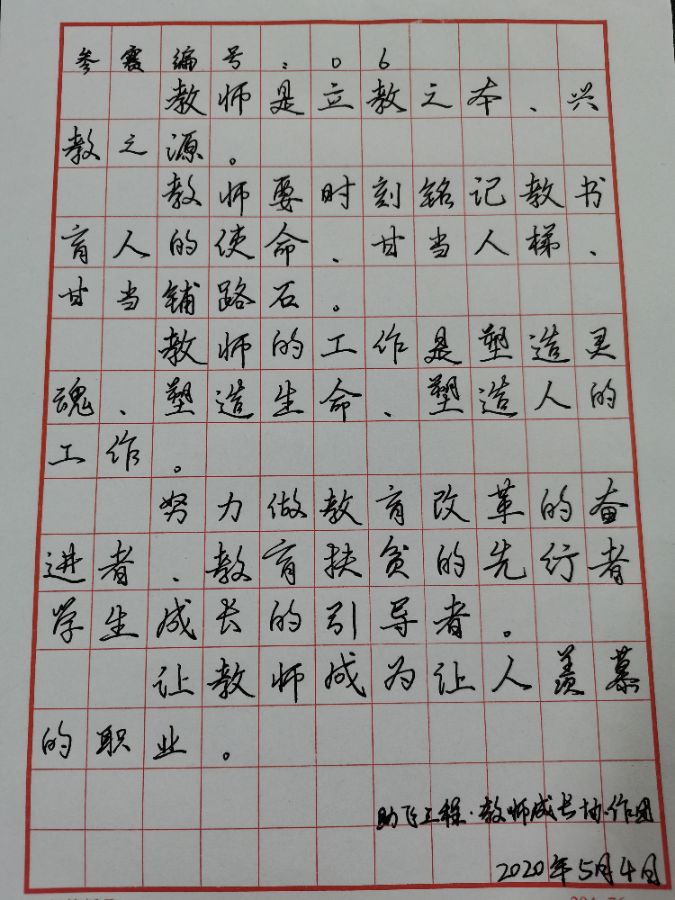 参赛编号:06
教师是立教之本、兴
教之源。
教师要时刻铭记教书
育人的使命、甘当人梯、
甘当铺路石。
教师的工作是塑造灵
魂、塑造生命、塑造人的
工作。
努力做教育改革的奋
进者、教育扶贫的先行者
学生成长的引导者。
让教师成为让人羡慕
的职业。
助飞工程·教师成长协作团
2020年5月4日